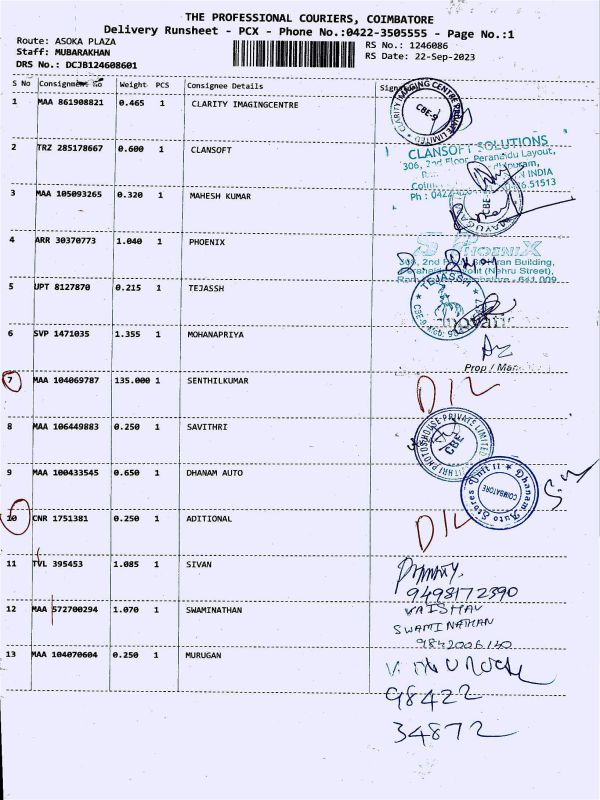 THE PROFESSIONAL COURIERS, COIMBATORE
Delivery Runsheet - PCX - Phone No.:0422-3505555 - Page No.:1
Route: ASOKA PLAZA
RS No.: 1246086
Staff: MUBARAKHAN
RS Date: 22-Sep-2023
DRS No.: DCJB124608601
S No Consignment No Weight PCS Consignee Details
1 MAA 861908821 0.465 1 CLARITY IMAGINGCENTRE
CBE-9
2 TRZ 285178667 0.600 1 CLANSOFT
CLANSOFT SOLUTIONS
306, 2nd Floor Peranaidu Layout,
INDIA
3 MAA 105093265 0.320 1 MAHESH KUMAR
51513
Ph : 0422
CBE
4 ARR 30370773 1.040 1 PHOENIX
PHOENIX
Building,
(Nehru Street),
641 009
5 UPT 8127870 0.215 1 TEJASSH
TEJASSH
6 SVP 1471035 1.355 1 MOHANAPRIYA
Prop / Man
7 MAA 104069787 135.000 1 SENTHILKUMAR
D/L
8 MAA 106449883 0.250 1 SAVITHRI
PRIVATE LIMITED
CBE
9 MAA 100433545 0.650 1 DHANAM AUTO
Dhanam Auto Stores Unit II
COIMBATORE
10 CNR 1751381 0.250 1 ADITIONAL
D/L
11 TVL 395453 1.085 1 SIVAN
9498172390
12 MAA 572700294 1.070 1 SWAMINATHAN
VAISHAV
SWAMINATHAN
13 MAA 104070604 0.250 1 MURUGAN
98422
34872